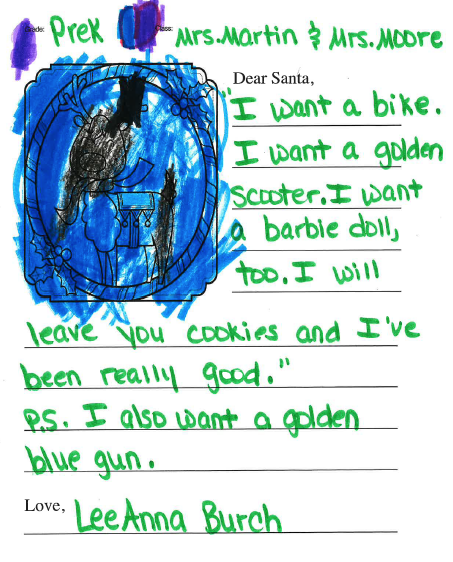 Grade: PreK Class: Mrs.Martin & Mrs.Moore
Dear Santa,
"I want a bike.
I want a golden
scooter. I want
a barbie doll,
too. I will
leave you cookies and I've
been really good."
P.S. I also want a golden
blue gun.
Love, LeeAnna Burch